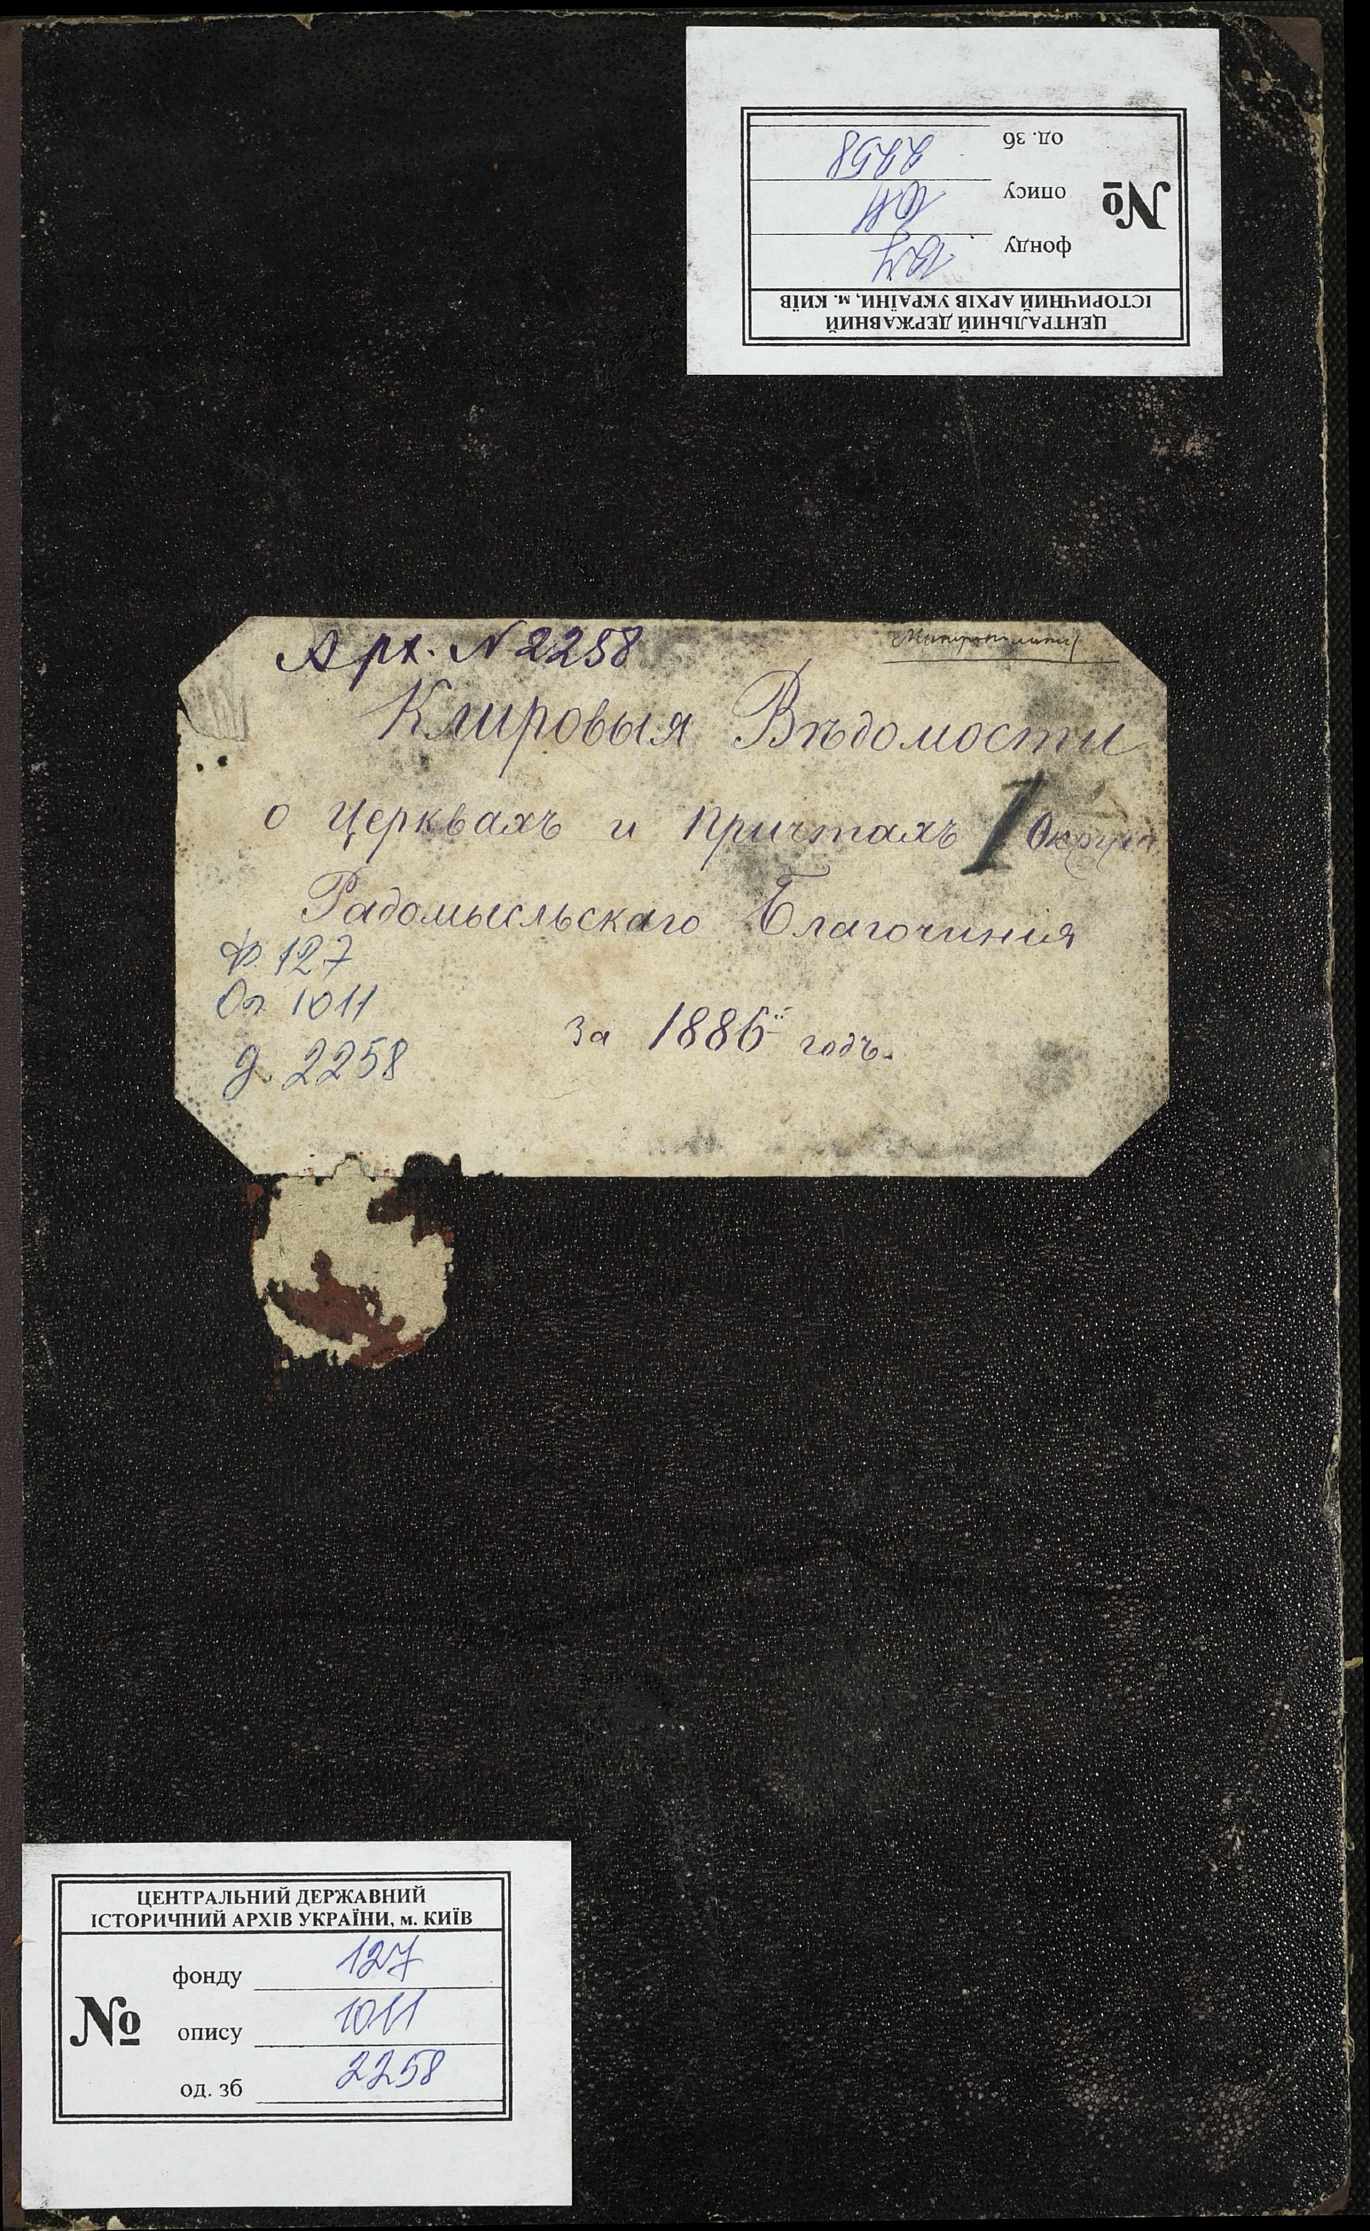 ЦЕНТРАЛЬНИЙ ДЕРЖАВНИЙ
ІСТОРИЧНИЙ АРХІВ УКРАЇНИ, м. КИЇВ
№
фонду 127
опису 1011
од. зб 2258
Арх. N 2258
Клировыя Вѣдомости
о Церквахъ и Причтахъ 1 Округа
Радомысльскаго Благочинія
за 1886й годъ.
Ф. 127
Оп 1011
д. 2258
ЦЕНТРАЛЬНИЙ ДЕРЖАВНИЙ
ІСТОРИЧНИЙ АРХІВ УКРАЇНИ, м. КИЇВ
№
фонду 127
опису 1011
од. зб 2258